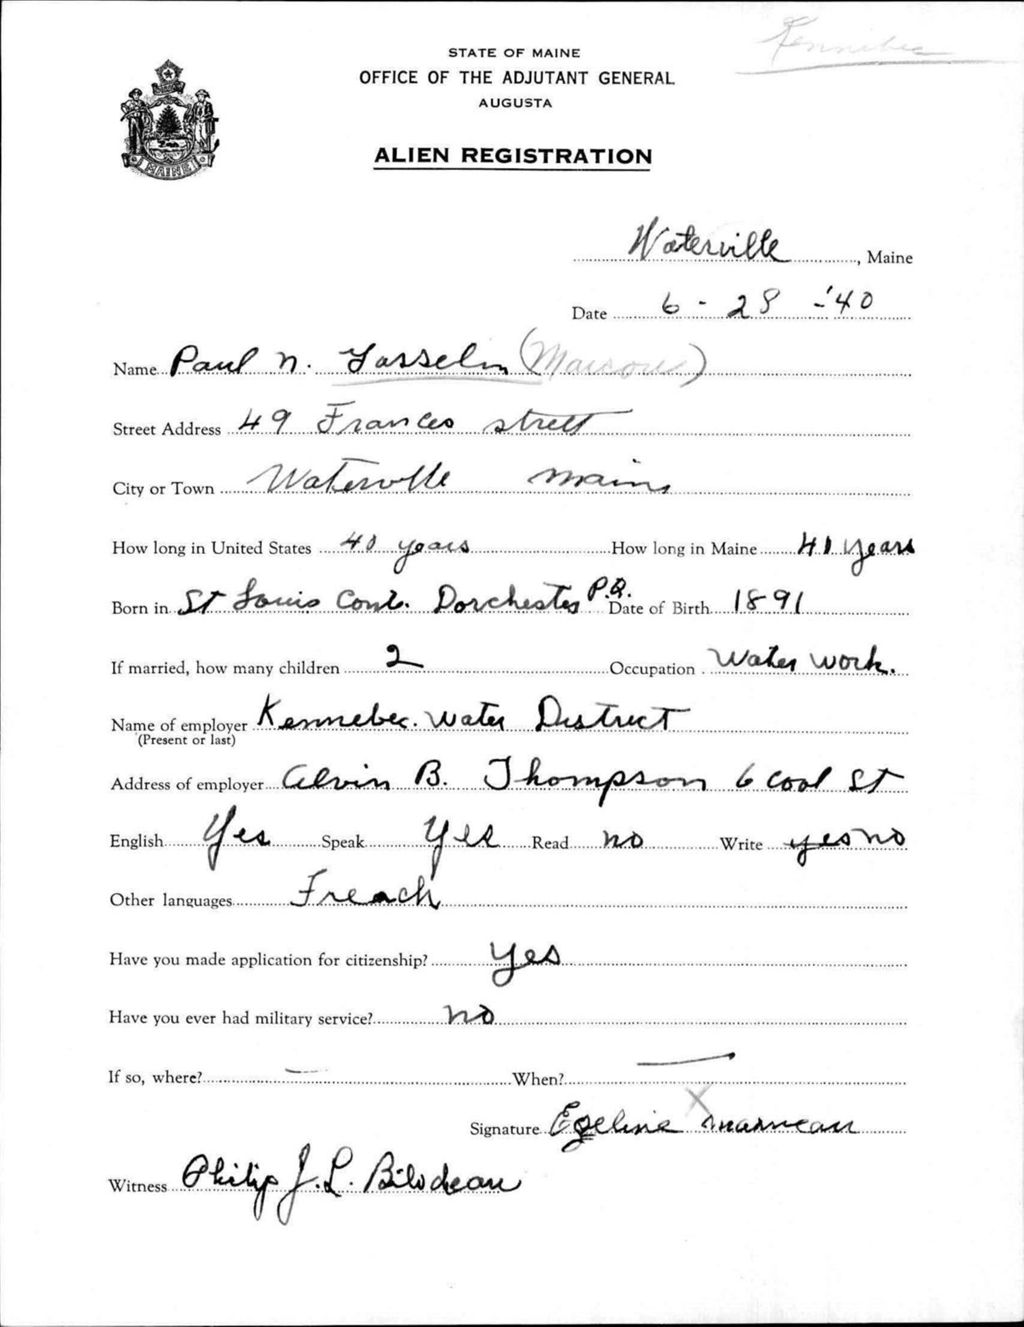 Kennebec
STATE OF MAINE
OFFICE OF THE ADJUTANT GENERAL
AUGUSTA
ALIEN REGISTRATION
MAINE
Waterville, Maine
Date 6 - 28 - '40
Name Paul N. Gosselin (Marcoux)
Street Address 49 Frances street
City or Town Waterville Maine
How long in United States 40 years How long in Maine 41 years
Born in St Louis Dorchester P.Q. Date of Birth 1891
If married, how many children 2 Occupation Water work.
Name of employer Kennebec. water District
(Present or last)
Address of employer Alvin B. Thompson 6 Cool St
English Yes Speak Yes Read no Write yes no
Other languages French
Have you made application for citizenship? yes
Have you ever had military service? no
If so, where? — When? —
Signature X
Witness Philip J. L. Bilodeau